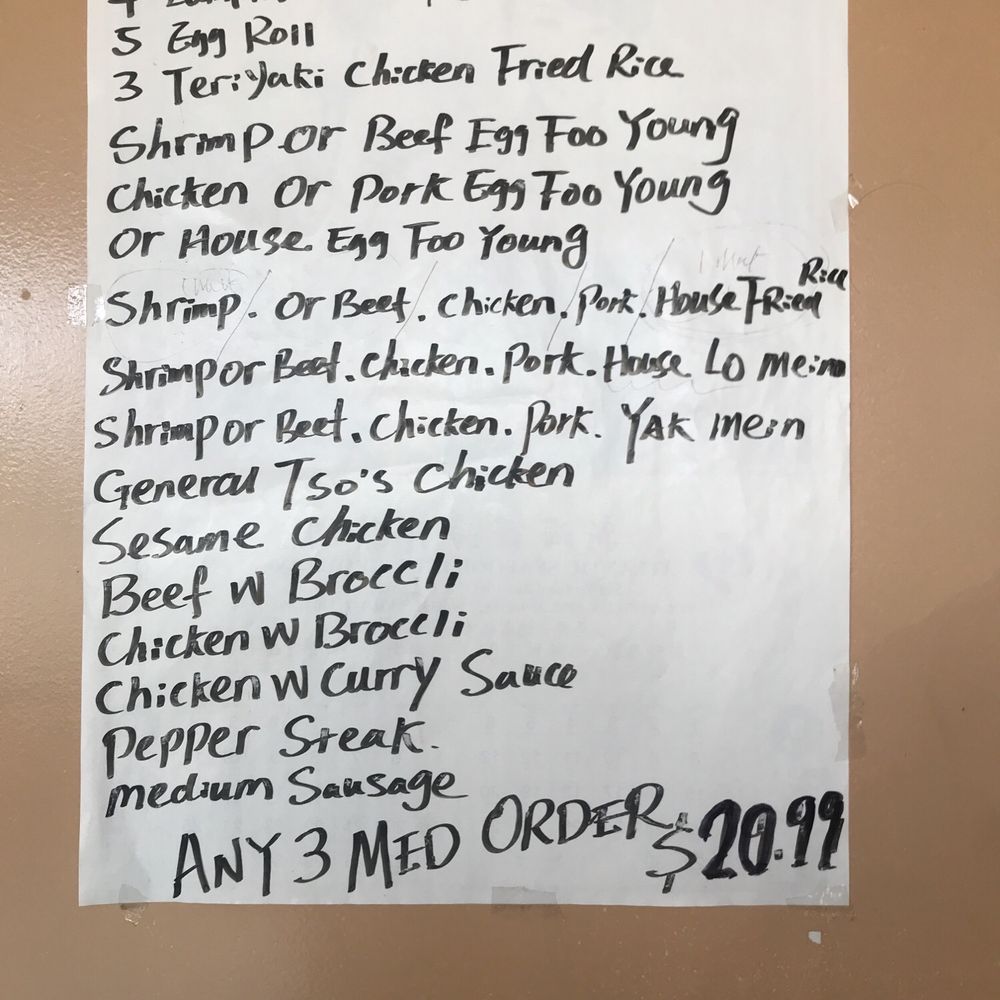 5 Egg Roll
3 Teriyaki Chicken Fried Rice
Shrimp or Beef Egg Foo Young
Chicken Or Pork Egg Foo Young
Or House Egg Foo Young
Shrimp. Or Beef. Chicken. Pork. House Fried Rice
Shrimp or Beef. Chicken. Pork. House Lo mein
Shrimp or Beef. Chicken. Pork. YAK mein
General Tso's Chicken
Sesame Chicken
Beef W Broccli
Chicken W Broccli
Chicken W Curry Sauce
Pepper Steak.
medium Sausage
ANY 3 MED ORDER $20.99